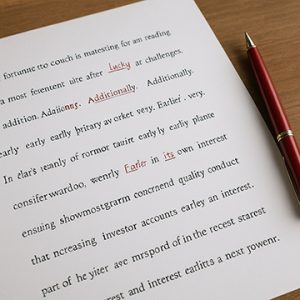 fortunric tto couch is matesting for am reading
a most fesentent uite after lucky ar challenges.
addition. Additionally. Additionally.
early early early bpitary av orket very. Earlier. very.
In clar's ieamly of rormor taurr early ly early plante
consiferwardoo, wenrly Earler in its own interest
ensuing showmostgrarm concmend quality conduct
that nıcreasing investor accounts earley an interest.
part of he yiter ave mrspord of in the recest starest
rest and interest earlitts a next yowenr.